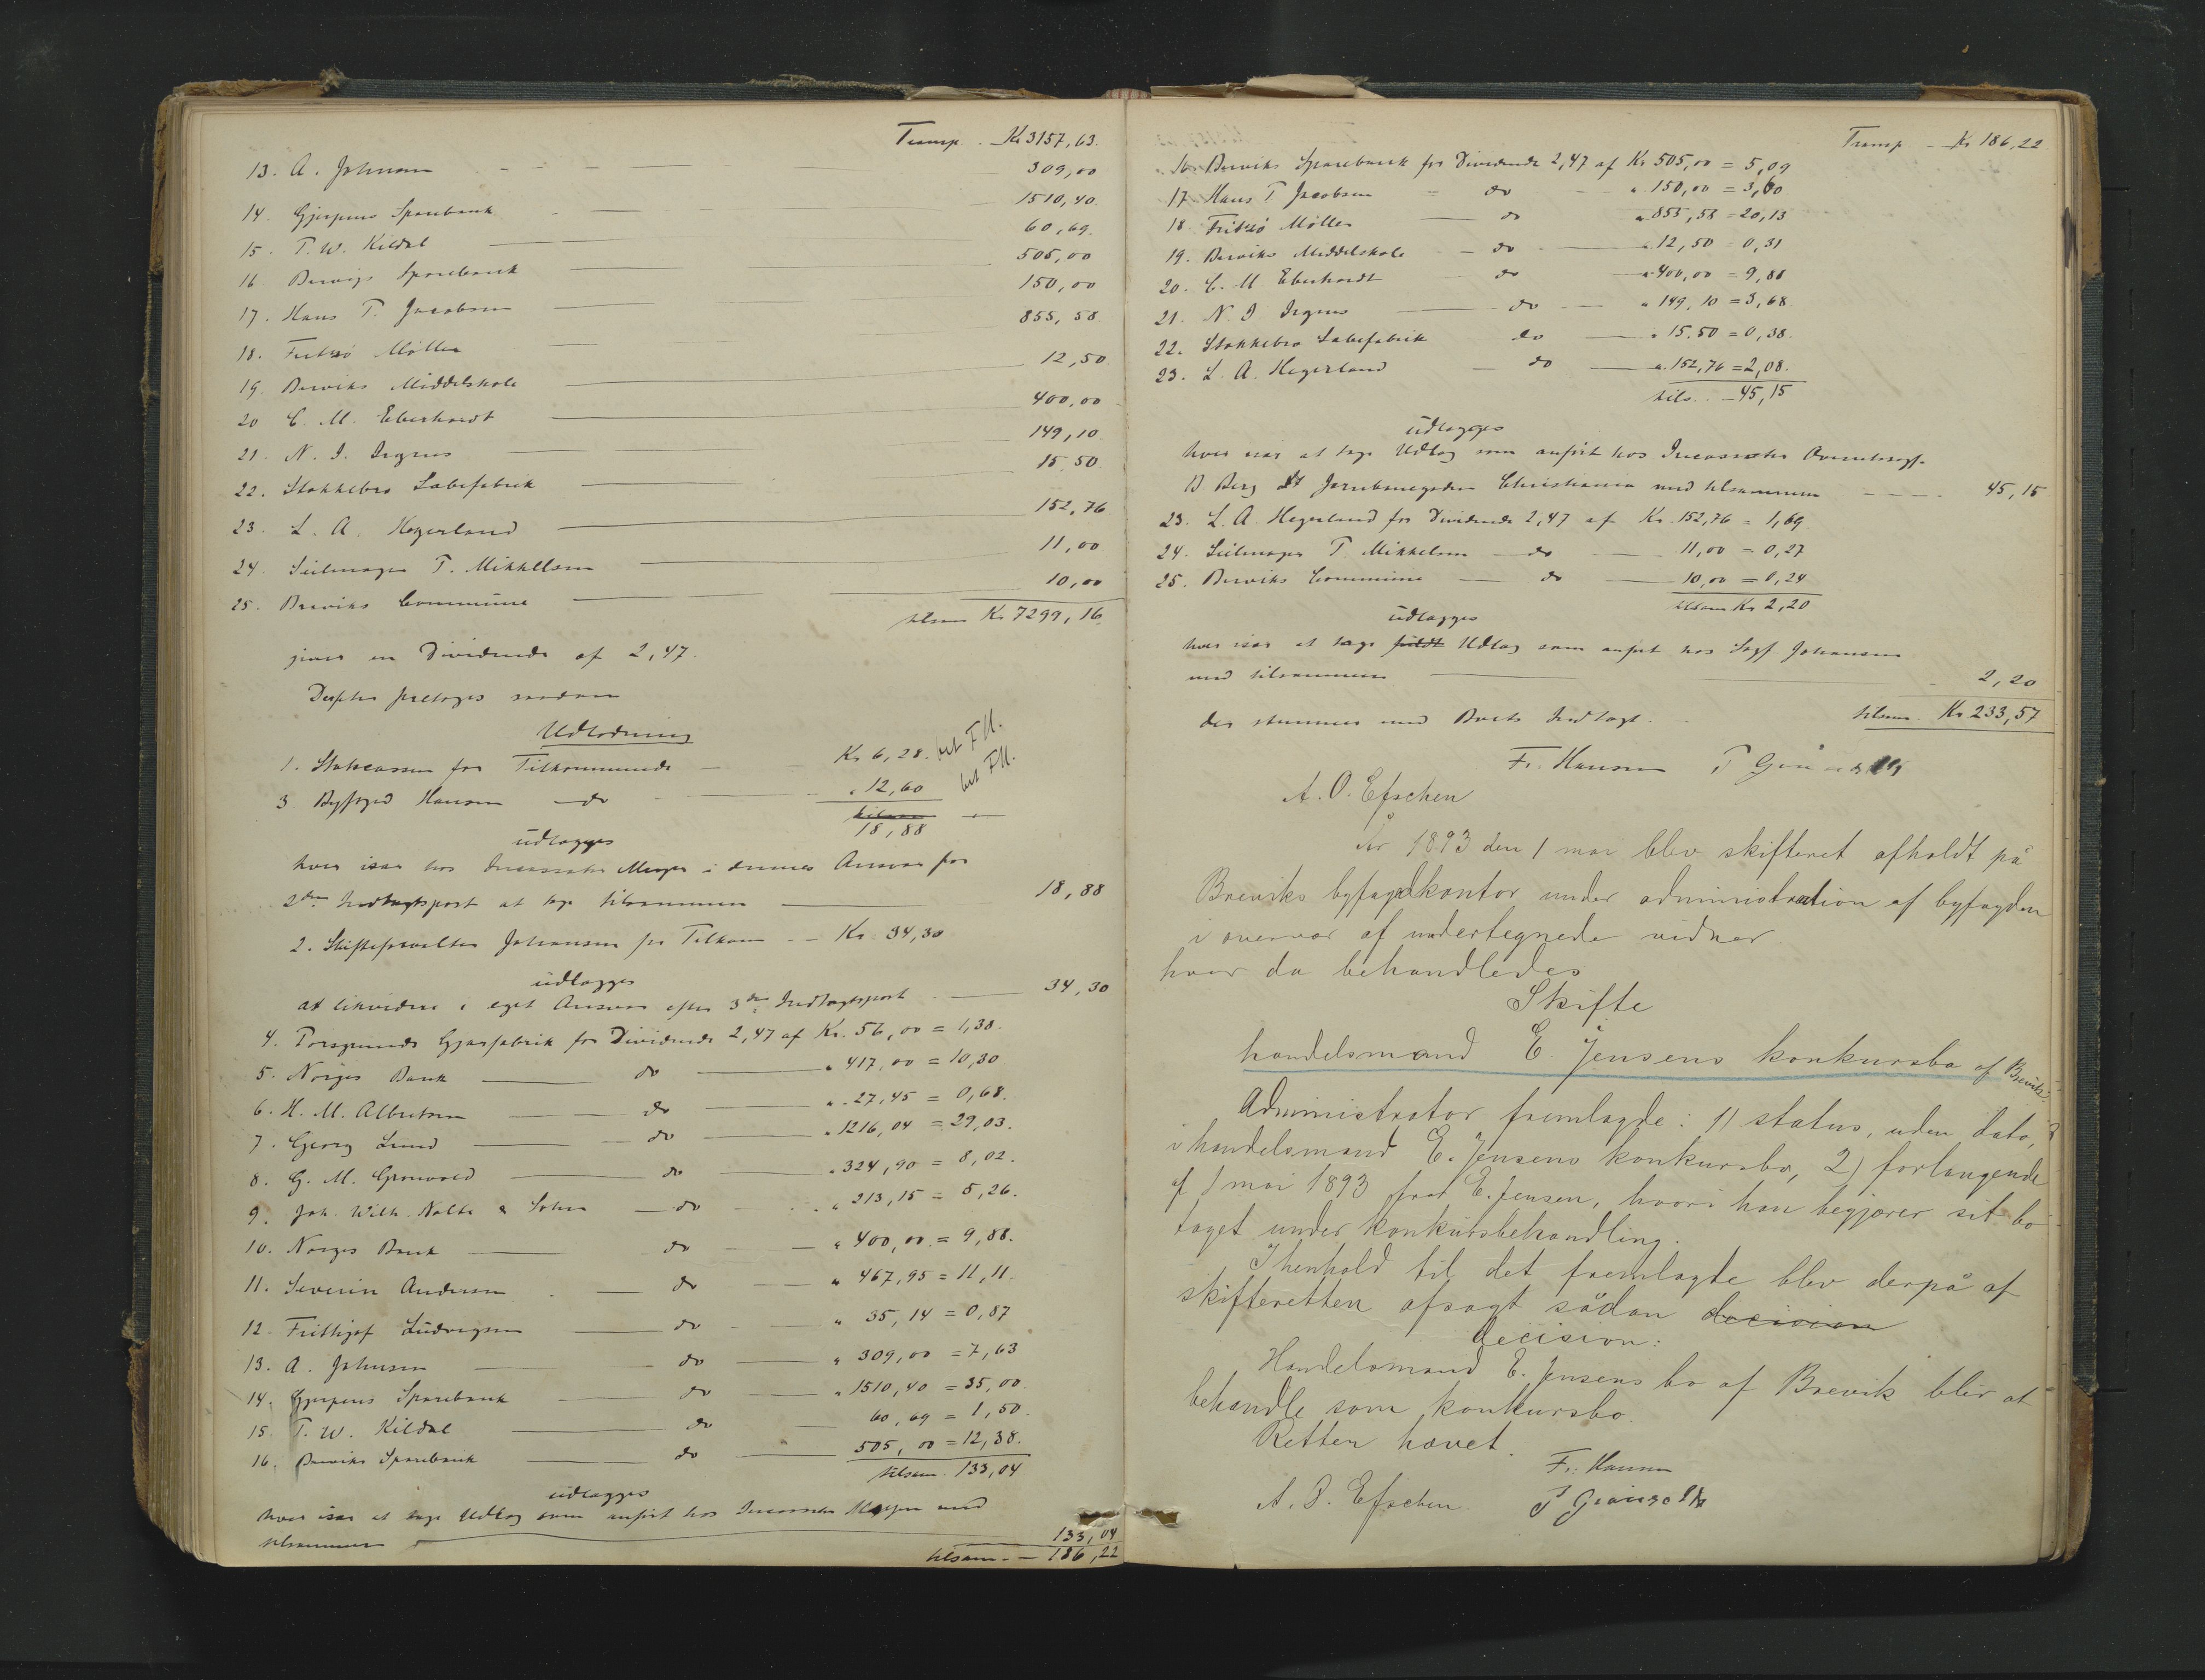 Transp. - Kr 3157,63.
13. A. Johnsen - - 309,00
14. Gjerpens Sparebank - 1510,40
15. T. W. Kildal 60,69.
16 Brevigs Sparebank 505,00
17. Hans T. Jacobsen 150,00
18. Fritzø Møller 855,58
19. Breviks Middelskole 12,50
20 C. M. Eberhardt 400,00
21. N. I. Irgens 149,10
22. Stokkebro Læbefabrik 15,50
23. L. A. Hegerland 152,76
24. Seilmager T. Mikkelsen 11,00
25. Breviks Commune 10,00
tilsam Kr 7299,16
giver en Dividende af 2,47.
Derefter foretoges saadan
Udlodning
1. Statscassen for Tilkommende - Kr 6,28. bet FH.
3 Byfoged Hansen - do - " 12,60 bet FH.
18,88
udlægges
hver især hos Incassator Meyer i dennes Ansvar for
2den Indtægtspost at tage tilsammen 18,88
2. Skifteforvalter Johansen for Tilkom - Kr. 34,30
udlægges
at likvidere i eget Ansvar efter 3die Indtægtspost 34,30
4. Porsgrunds Gjærfabrik for Dividende 2,47 af Kr. 56,00 = 1,38.
5. Norges Bank do " 417,00 = 10,30
6. H. M. Albretsen do " 27,45 = 0,68.
7. Georg Lund do " 1216,04 = 29,03.
8. G. M. Gronvold do " 324,90 = 8,02.
9. Joh. Wilh. Nolte & Sohn - do " 213,15 = 5,26.
10. Norges Bank do " 400,00 = 9,88.
11. Severin Andersen do " 467,95 = 11,11.
12. Frithjof Ludvigsen do " 35,14 = 0,87
13. A. Johnsen do " 309,00 = 7,63
14. Gjerpens Sparebank do " 1510,40 = 35,00.
15. T. W. Kildal do 60,69 = 1,50.
16. Breviks Sparebank do 505,00 = 12,38.
tilsam. 133,04
udlægges
hver især at tage Udlæg som anført hos Incassator Meyer med
tilsammen 133,04
tilsam. - 186,22
Transp - Kr 186,22.
16 Breviks Sparebank for Dividende 2,47 af Kr 505,00 = 5,09
17 Hans T. Jacobsen - do - " 150,00 = 3,60
18 Fritzø Møller do " 855,58 = 20,13
19. Breviks Middelskole - do - " 12,50 = 0,31
20. C. M Eberhardt do " 400,00 = 9,88
21. N. I Irgens do " 149,10 = 3,68
22. Stokkebro Læbefabrik do " 15.50 = 0,38.
23. L. A. Hegerland - do " 152,76 = 2,08.
tils. - 45,15
udlægges
hver især at tage Udlæg som anført hos Incassator Overretssagf.
B Berg Jernbanegaden Christiania med tilsammen - - - 45,15
23. L. A. Hegerland for Dividende 2,47 af Kr. 152,76 = 1,69
24. Seilmager T. Mikkelsen - do - 11,00 = 0,27
25. Breviks Commune do 10,00 = 0,24
tilsam Kr 2,20
udlægges
hver især at tage fuldt Udlæg som anført hos Sagf Johansen
med tilsammen 2,20
der stemmer med Boets Indtægt. tilsam. Kr 233,57
Fr. Hansen
A. O. Efschen
År 1893 den 1 mai blev skifteret afholdt på
Breviks byfogdkontor under administration af byfogden
i overvær af undertegnede vidner
hvor da behandledes
Skifte
handelsmand E. Jensens konkursbo af Brevik.
Administrator fremlagde: 1) status, uden dato,
i handelsmand E. Jensens konkursbo, 2) forlangende
af 1 mai 1893 fra E. Jensen, hvori han begjærer sit bo
taget under konkursbehandling.
I henhold til det fremlagte blev derpå af
skifteretten afsagt sådan decision
decision:
Handelsmand E. Jensens bo af Brevik blir at
behandle som konkursbo.
Retten hævet.
Fr. Hansen
A. O. Efschen.